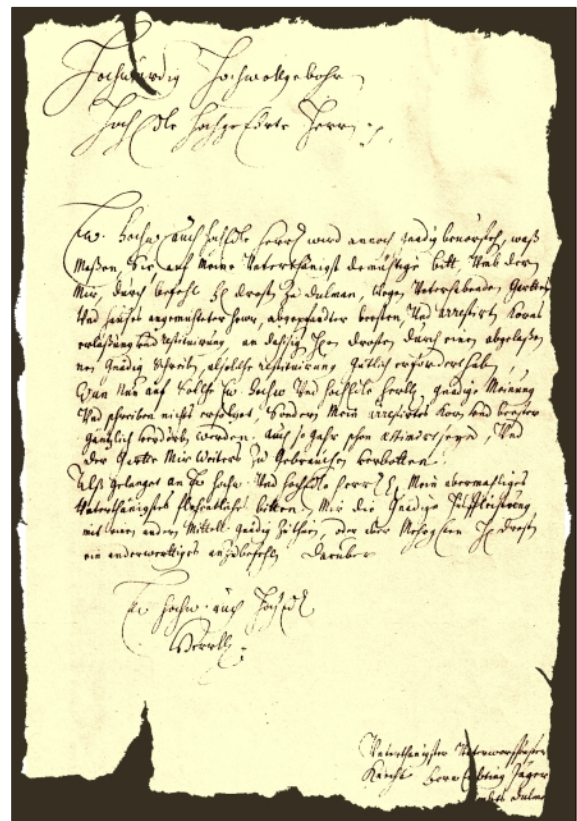 Hochwürdig Hochwollgebohrn
Hoch Edle Hochgelehrte Herrn
Ew. Hochw. auch HochEdle Herrl wird annoch gnädig bewust, waß
Maßen, Sie auf Meine Unterthänigst demühtige bitt, Umb der
Mir, durch befehl H drosten Zu dulman, wegen Unterhabenden Garttes
Und hauses angemuhteter hewr, abgepfandter beesten, Und arrestirt Korns
erlaßung Und restituirung, an dahsig Hen drosten durch einen abgelaße
nen gnädig schreiben, alsolche restituirung gütlich erfordert haben,
Wan Nun auf Solche Ew. Hochw Und HochEdle Herrl gnädige Meinung
Und schreiben nichts erfolget, Sondern Mein arrestirtes Korn Und beester
gäntzlich verdorben werden auch so gahr schon æstimirt seyn, Und
der Gartte Mir weiters Zu gebrauchen verbotten.
Alß gelanget an Ew Hochw Und HochEdle Herrl Mein abermahliges
Unterthänigstes flehentliches bitten, Mir die gnädige
mit einen andern Mittell gnädig Zuthun, oder aber H drosten
ein anderwertiges anzubefehlen Darüber
Ew Hochw. auch HochEdl
Herrll
Unterthänigster
Knecht Jäger
dulman